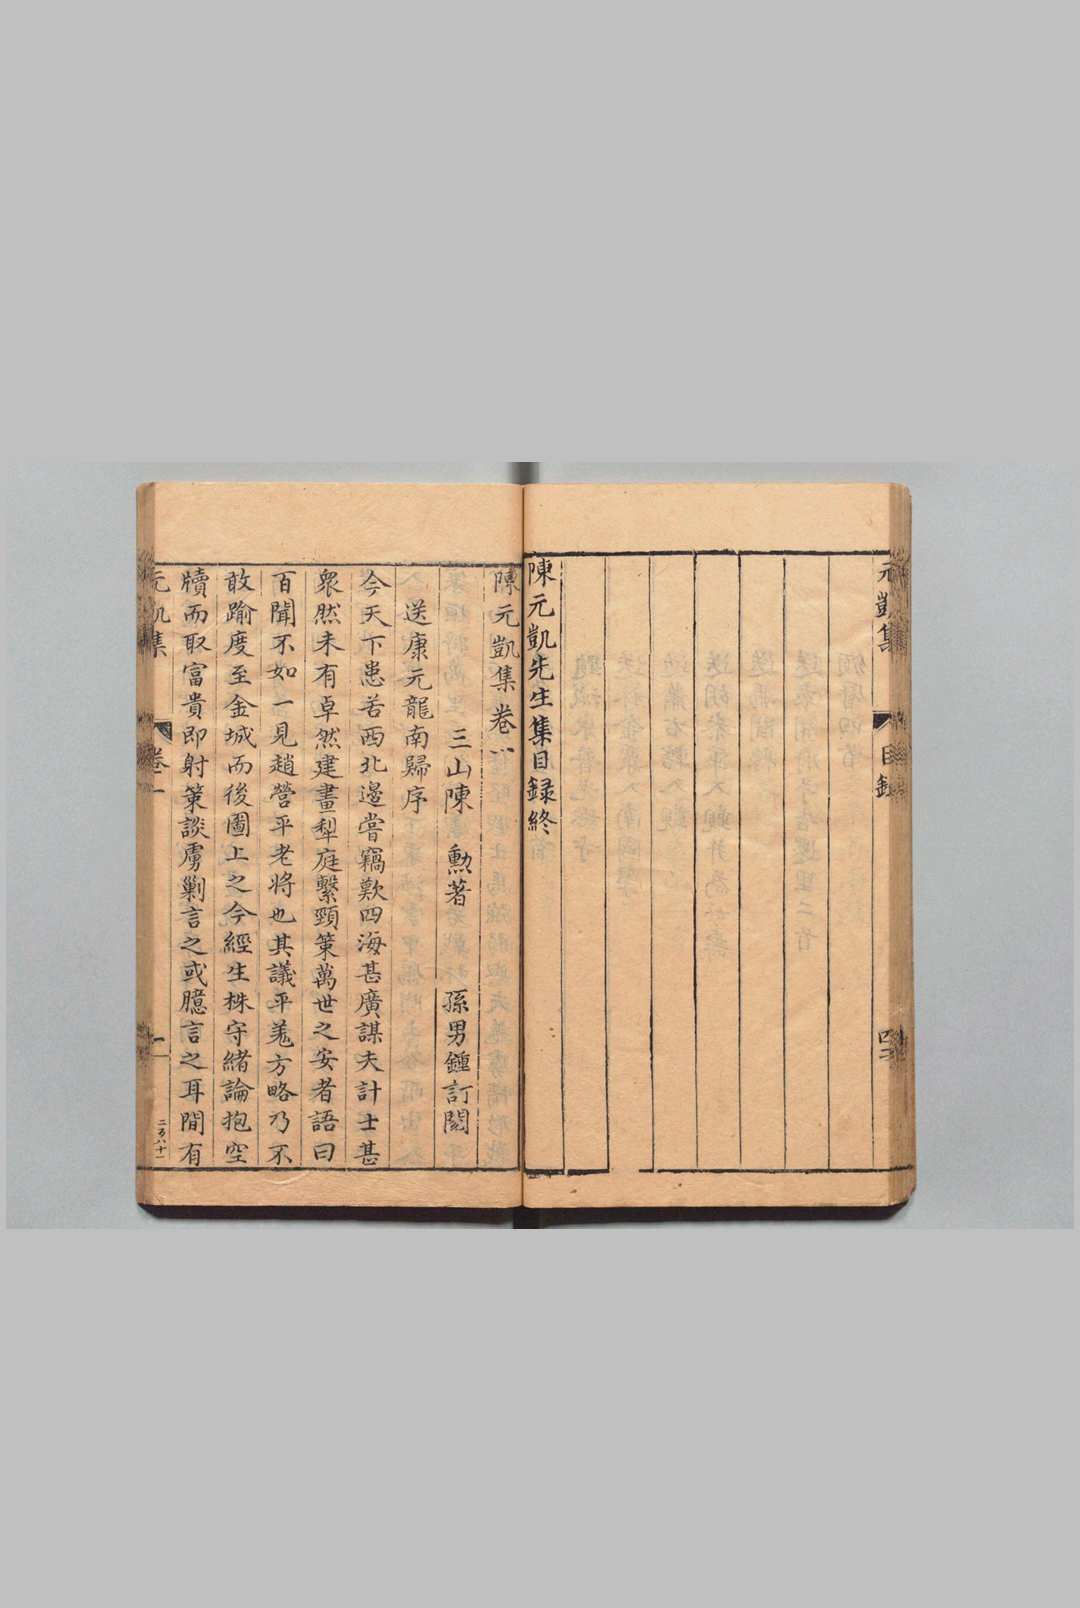 元凱集
目錄
四二
陳元凱先生集目錄終
陳元凱集卷一
三山陳 勲著 孫男鍾訂閱
送康元龍南歸序
今天下患苦西北邊嘗竊歎四海甚廣謀夫計士甚
衆然未有卓然建畫犁庭繫頸策萬世之安者語曰
百聞不如一見趙營平老將也其議平羌方略乃不
敢踰度至金城而後圖上之今經生株守緒論抱空
牘而取富貴即射策談虜剿言之或臆言之耳間有
元凱集
卷一
一